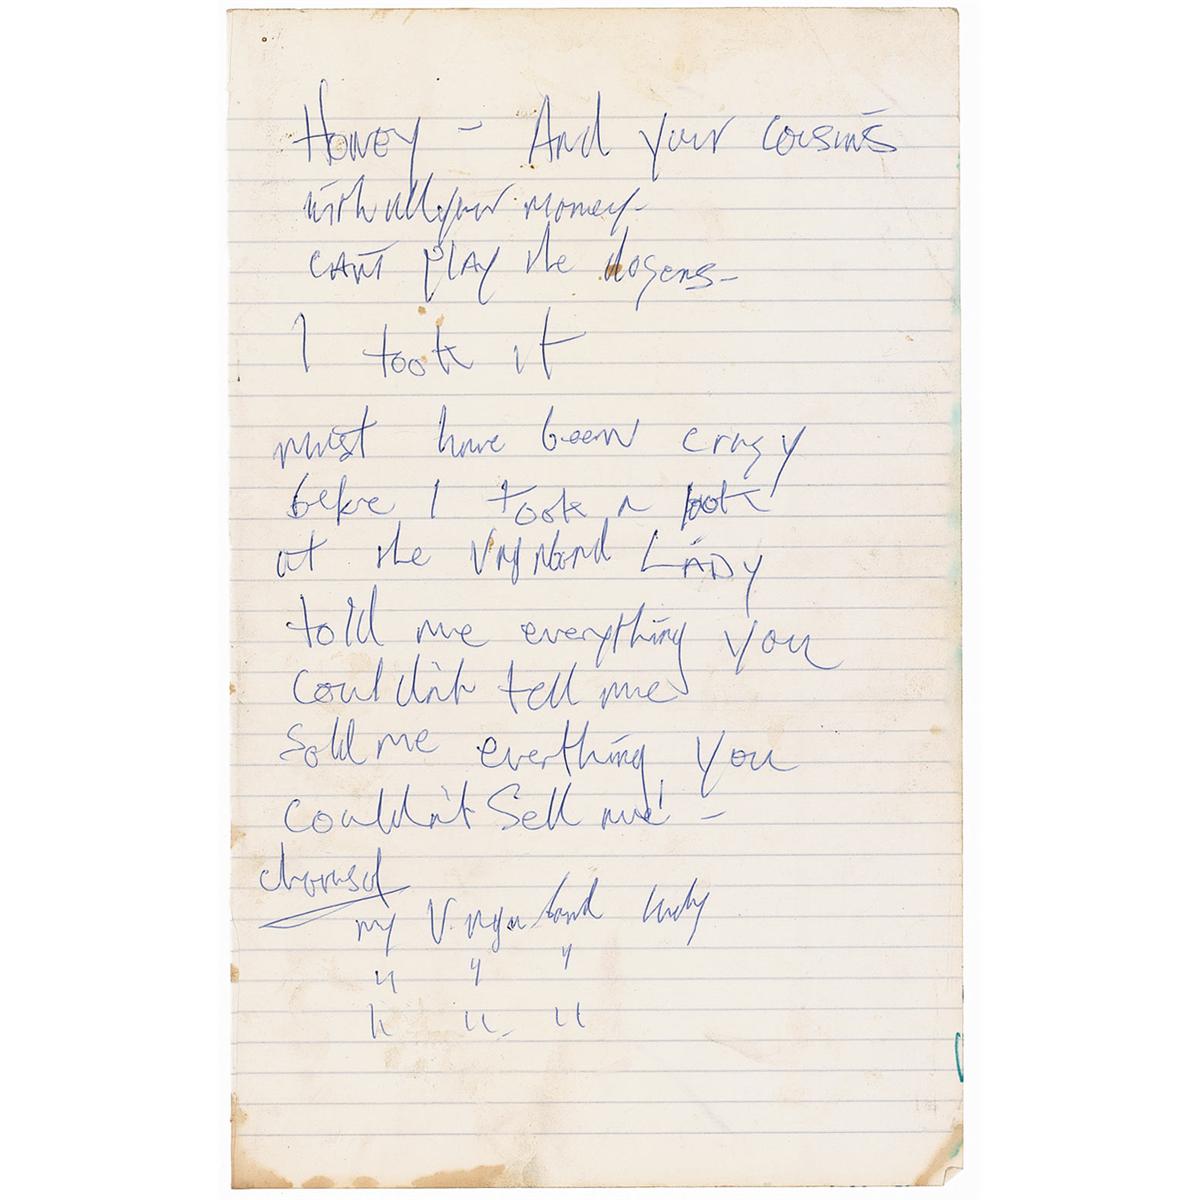 Honey - And your cousins
with all your money -
CAN'T PLAY the dozens -
I took it
must have been crazy
before I took a look
at the Vagabond LADY
told me everything you
couldn't tell me
Sold me everthing you
couldn't Sell me! -
my Vagabond lady
" " "
" " "